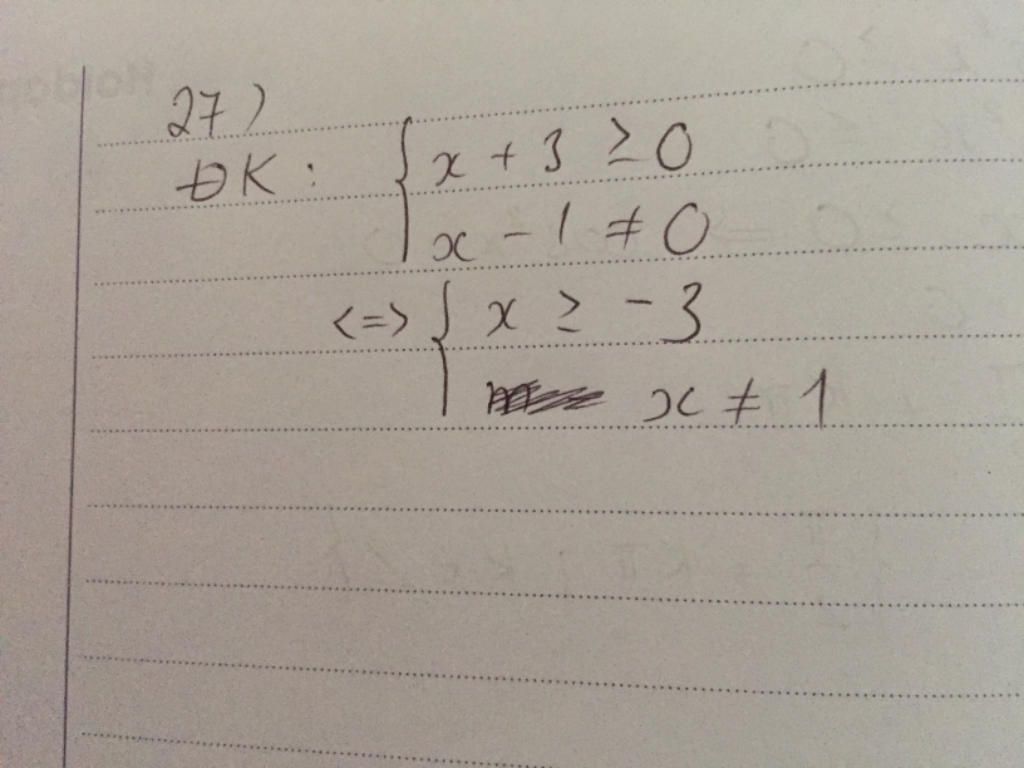 27)
ĐK: { x + 3 ≥ 0
x - 1 ≠ 0
<=> { x ≥ -3
x ≠ 1